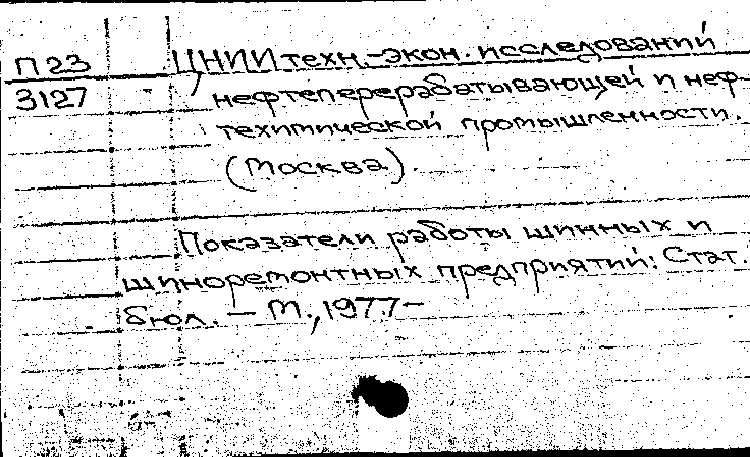 П 23 ЦНИИ техн.-экон. исследований
3127 нефтеперерабатывающей и неф-
техимической промышленности.
(Москва).
Показатели работы шинных и
шиноремонтных предприятий: Стат.
бюл. — М., 1977–